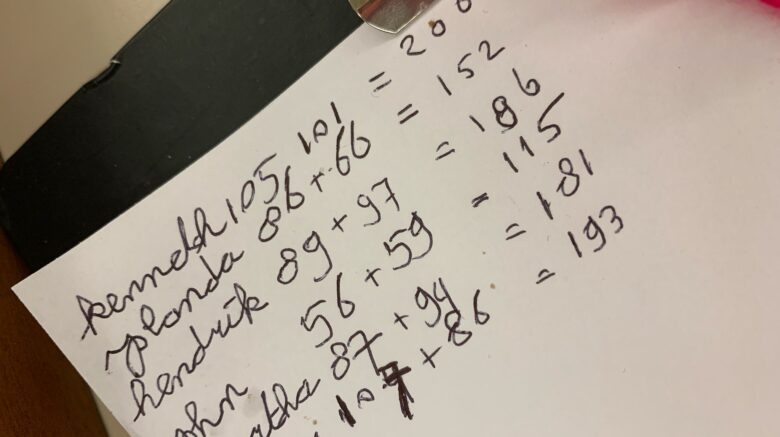 kenneth 105 101 = 200
yolanda 86 + 66 = 152
hendrik 89 + 97 = 186
56 + 59 = 115
87 + 94 = 181
107 + 86 = 193